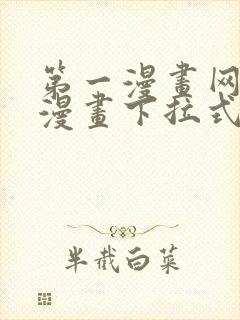 第一漫畫网
漫畫下拉式
半截白菜